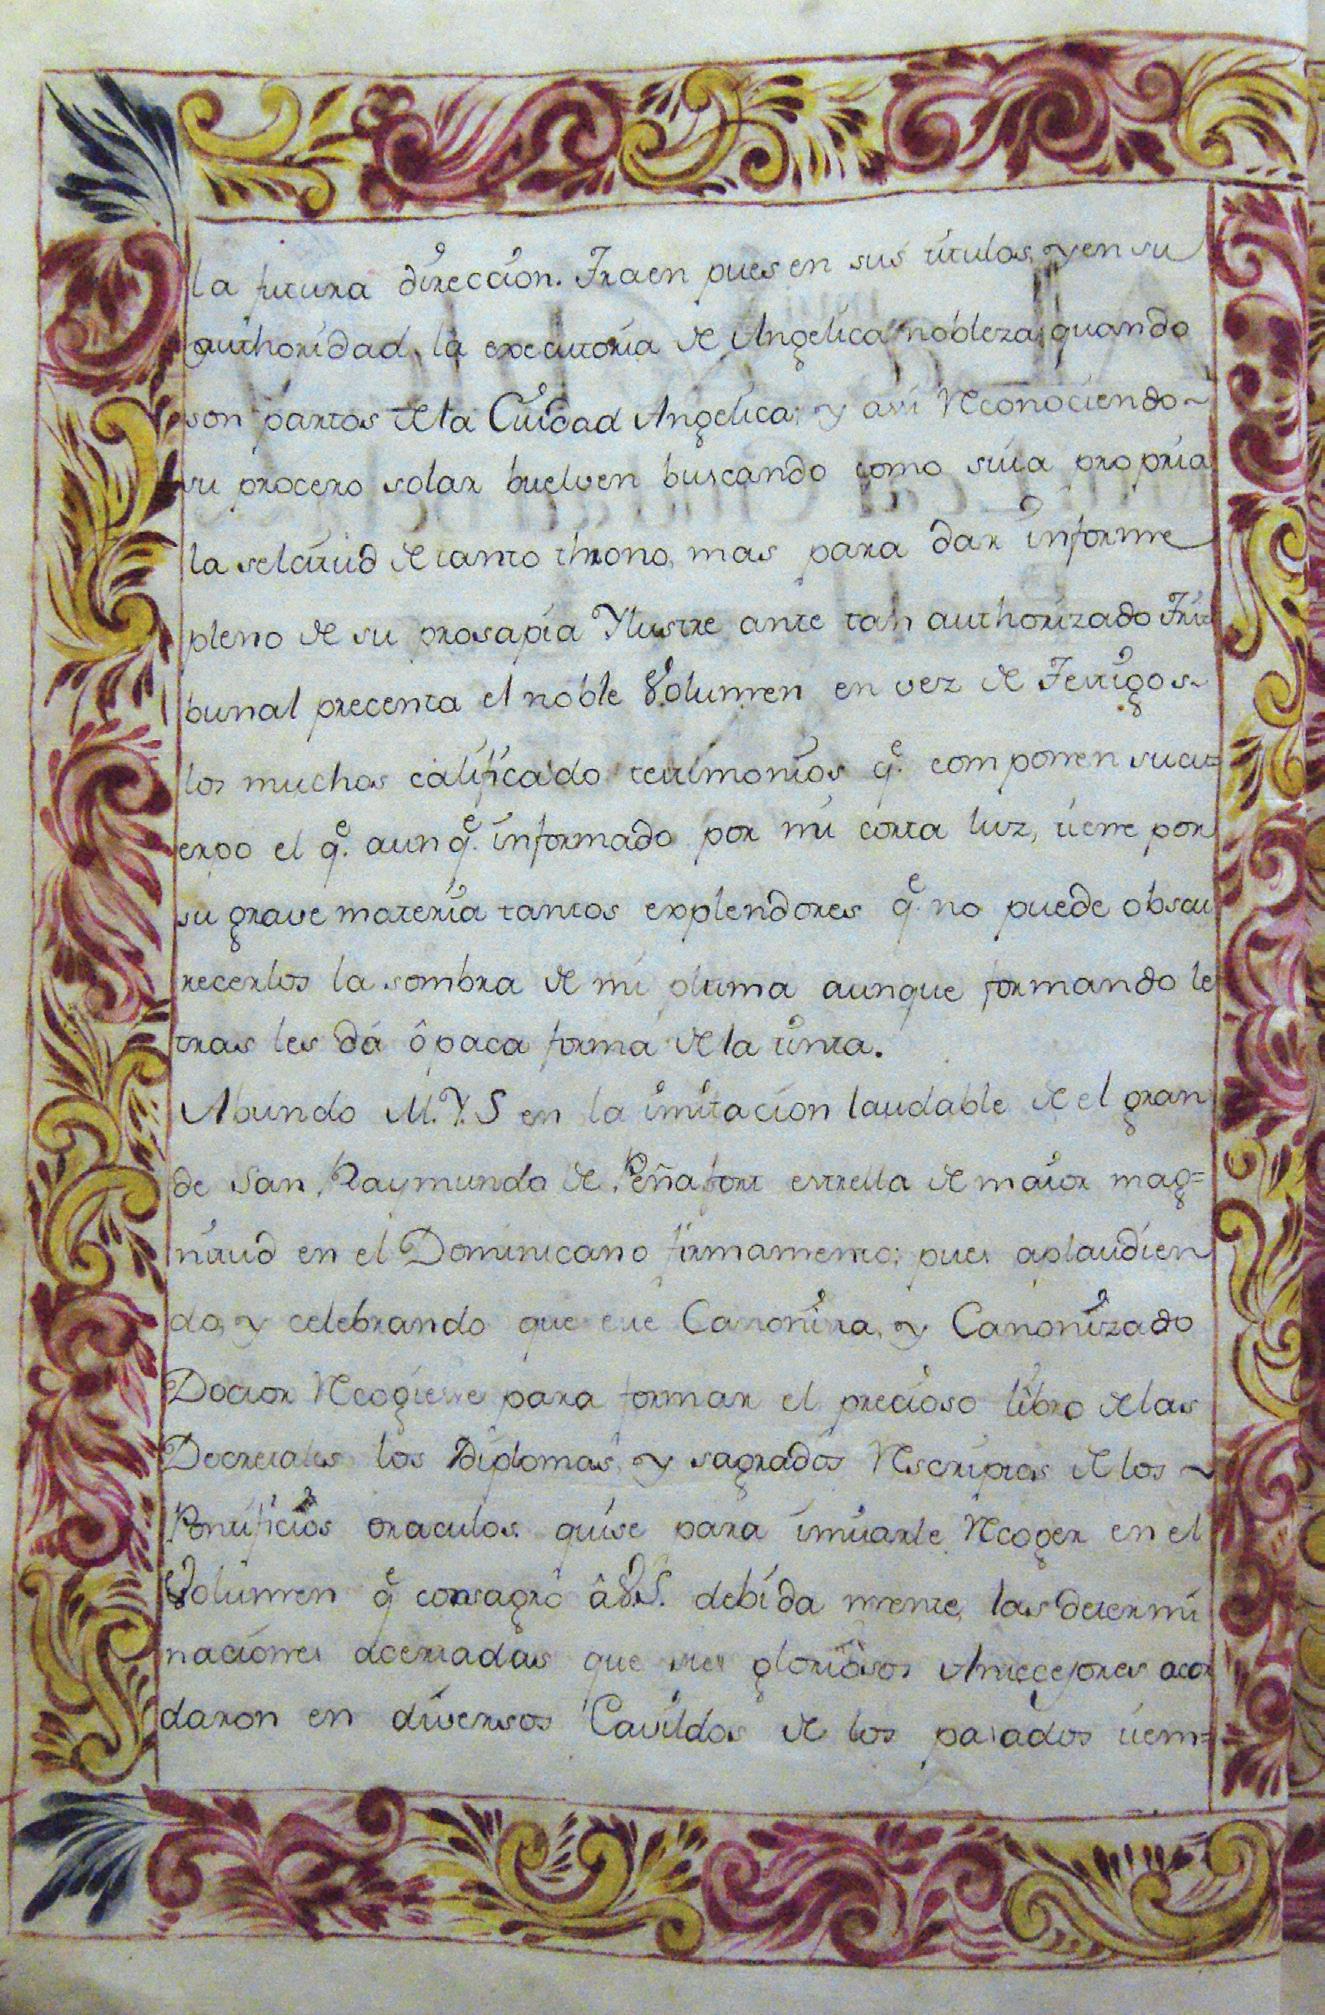 la futura direccion. Traen pues en sus titulos, y en su
authoridad, la executoria de Angelica nobleza, quando
son partos de la Ciudad Angelica; y assi Reconociendo~
su procero solar buelven buscando como suia propria
la selcitud de tanto throno, mas para dar informe
pleno de su prosapia Ylustre ante tan authorizado Tri
bunal precenta el noble Volumen en vez de Testigos~
los muchos calificado testimonios q.e componen su cu=
erpo el q.e aun q.e informado por mi corta luz, tiene por
su grave materia tantos explendores q.e no puede obscu
recerlos la sombra de mi pluma aunque formando le
tras les dá ôpaca forma de la tinta.
Abundo M.Y.S en la imitacion laudable de el gran
de San Raymundo de Peñafort estrella de maior mag=
nitud en el Dominicano firmamento; pues aplaudien
do, y celebrando que este Canonista, y Canonizado
Doctor Recogiesse para formar el precioso libro de las
Decretales los Diplomas, y sagrados Rescriptos de los ~
Pontificios oraculos, quise para imitarle Recoger en el
Volumen q.e consagrò â V.S. debidamente, las determi
naciones acertadas que sus gloriosos Antecesores acor
daron en diversos Cavildos de los pasados tiem=